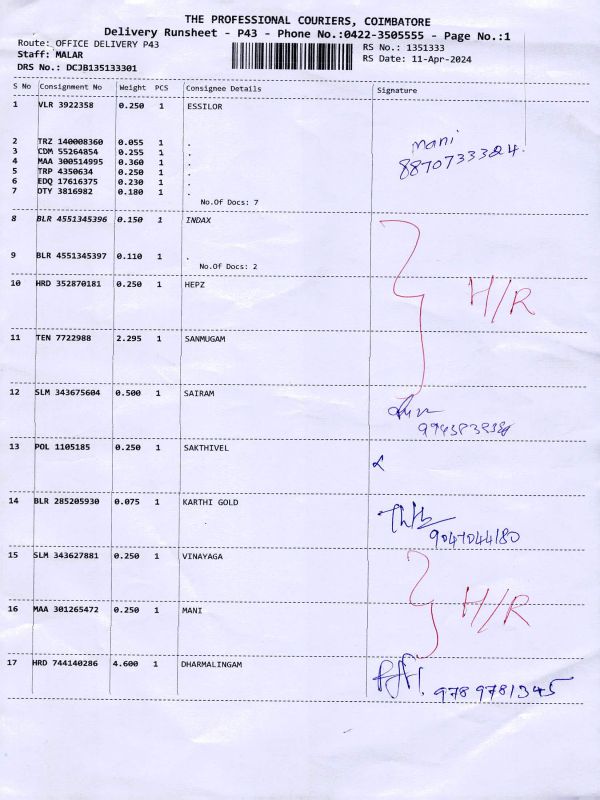 THE PROFESSIONAL COURIERS, COIMBATORE
Delivery Runsheet - P43 - Phone No.:0422-3505555 - Page No.:1
Route: OFFICE DELIVERY P43
RS No.: 1351333
Staff: MALAR
RS Date: 11-Apr-2024
DRS No.: DCJB135133301
S No Consignment No Weight PCS Consignee Details Signature
1 VLR 3922358 0.250 1 ESSILOR
2 TRZ 140008360 0.055 1 .
3 CDM 55264854 0.255 1 .
4 MAA 300514995 0.360 1 .
5 TRP 4350634 0.250 1 .
6 EDQ 17616375 0.230 1 .
7 DTY 3816982 0.180 1 .
No.Of Docs: 7
Mani
8 BLR 4551345396 0.150 1 INDAX
9 BLR 4551345397 0.110 1 .
No.Of Docs: 2
10 HRD 352870181 0.250 1 HEPZ
H/R
11 TEN 7722988 2.295 1 SANMUGAM
12 SLM 343675604 0.500 1 SAIRAM
13 POL 1105185 0.250 1 SAKTHIVEL
14 BLR 285205930 0.075 1 KARTHI GOLD
9047044180
15 SLM 343627881 0.250 1 VINAYAGA
16 MAA 301265472 0.250 1 MANI
H/R
17 HRD 744140286 4.600 1 DHARMALINGAM
9789781345